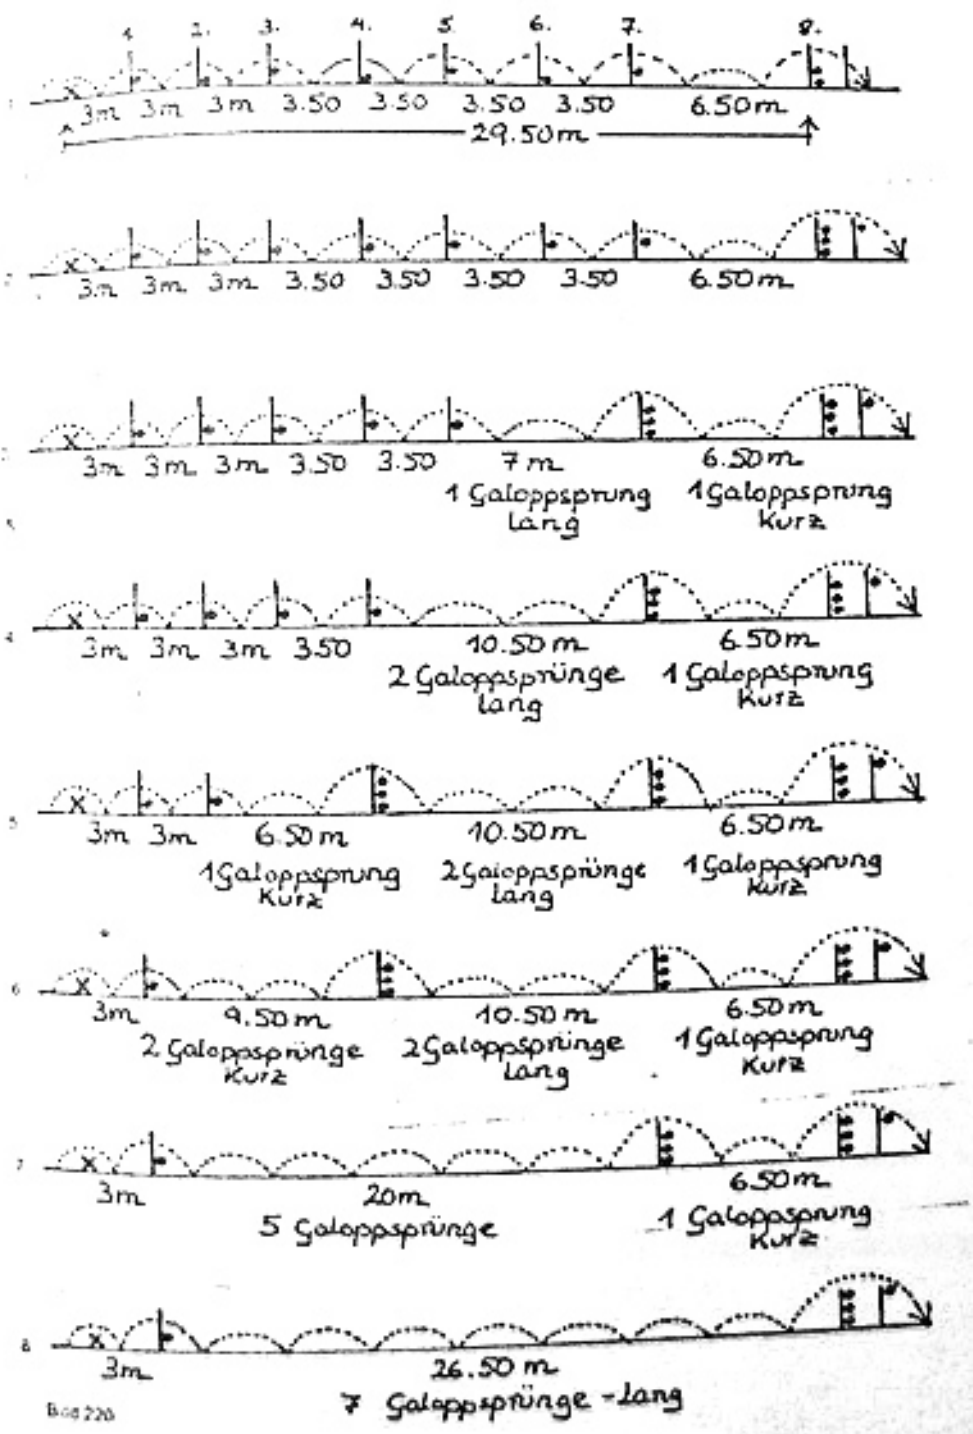 1. 2. 3. 4. 5. 6. 7. 8.
3m 3m 3m 3.50 3.50 3.50 3.50 6.50m
29.50m
3m 3m 3m 3.50 3.50 3.50 3.50 6.50m
3m 3m 3m 3.50 3.50 7m 6.50m
1 Galoppsprung 1 Galoppsprung
Lang Kurz
4 3m 3m 3m 3.50 10.50m 6.50m
2 Galoppsprünge 1 Galoppsprung
Lang Kurz
5 3m 3m 6.50m 10.50m 6.50m
1 Galoppsprung 2 Galoppsprünge 1 Galoppsprung
Kurz Lang Kurz
6 3m 9.50m 10.50m 6.50m
2 Galoppsprünge 2 Galoppsprünge 1 Galoppsprung
Kurz Lang Kurz
7 3m 20m 6.50m
5 Galoppsprünge 1 Galoppsprung
Kurz
8
3m 26.50m
7 Galoppsprünge - Lang
220